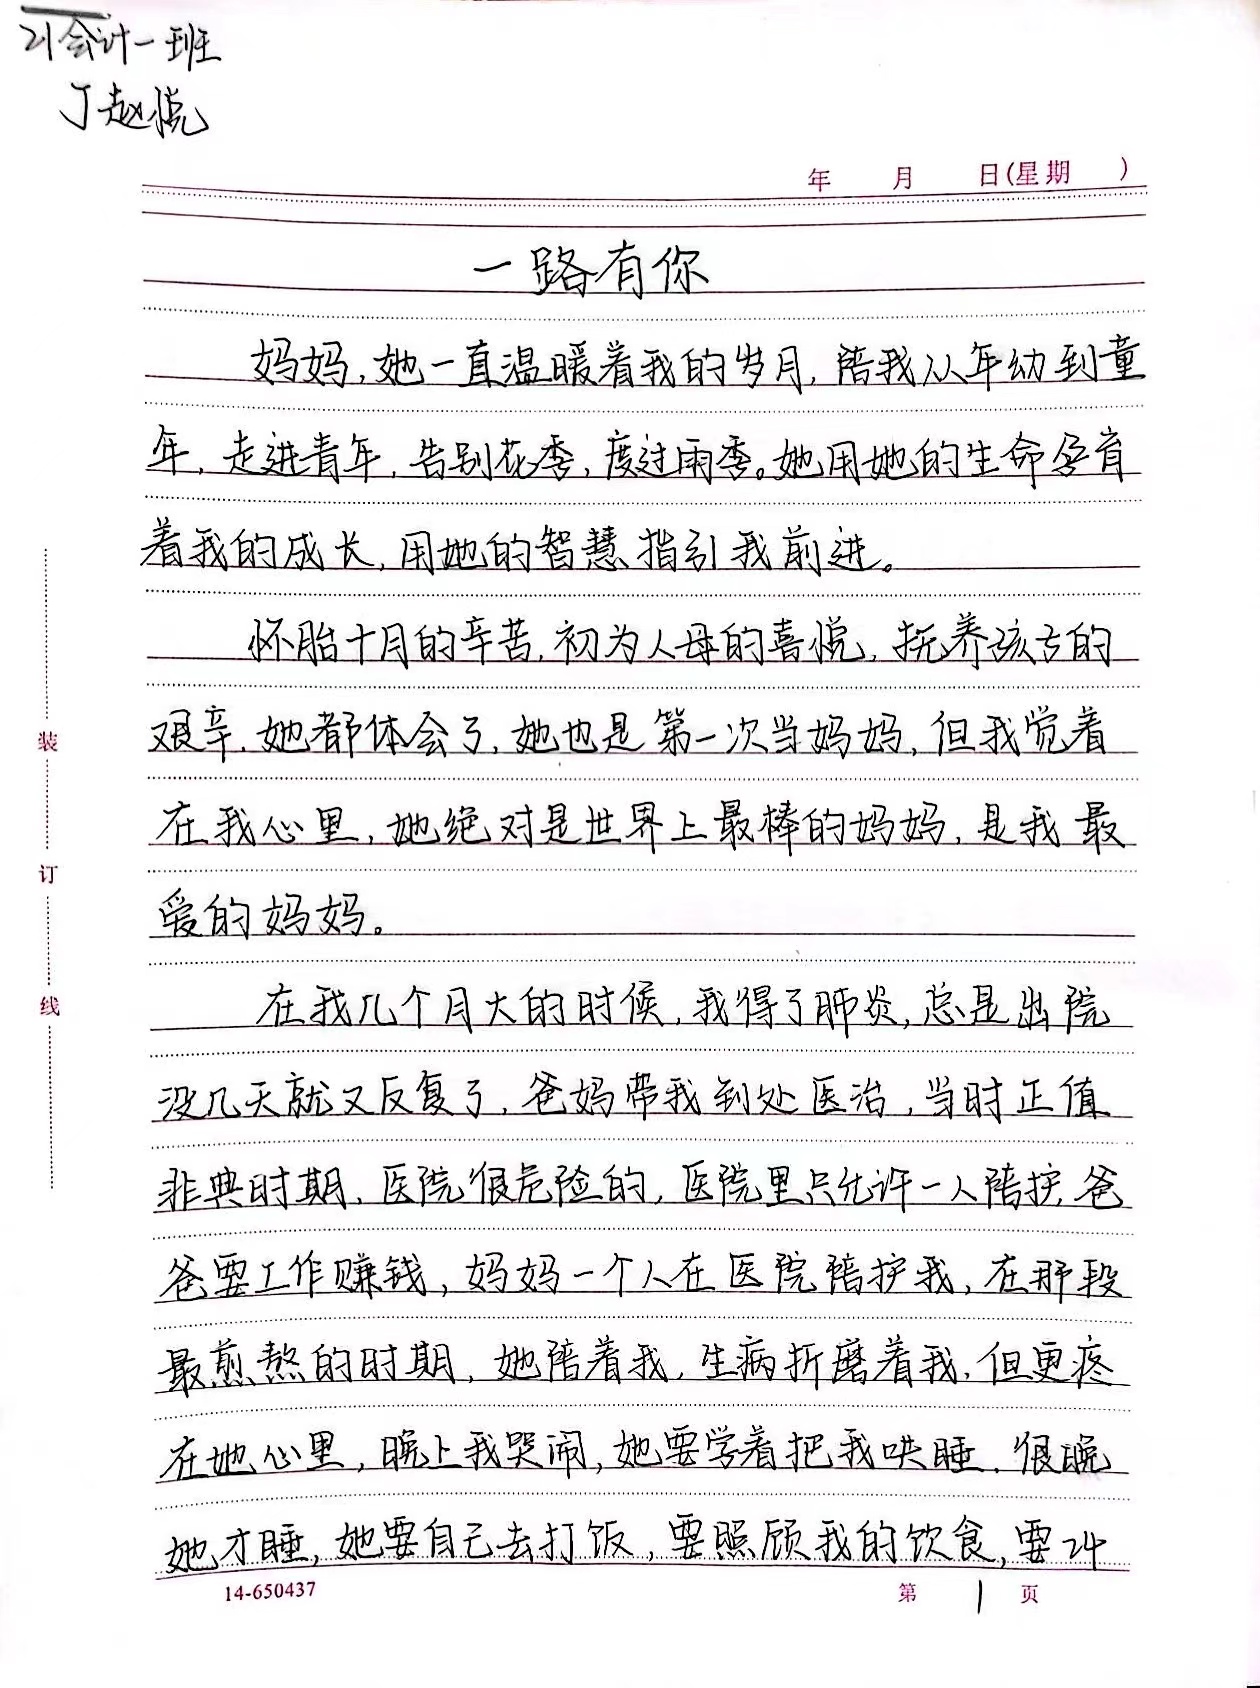 21会计一班
丁赵悦
年 月 日(星期 )
一路有你
妈妈,她一直温暖着我的岁月,陪我从年幼到童
年,走进青年,告别花季,度过雨季。她用她的生命孕育
着我的成长,用她的智慧指引我前进。
怀胎十月的辛苦,初为人母的喜悦,抚养孩子的
艰辛,她都体会了,她也是第一次当妈妈,但我觉着
在我心里,她绝对是世界上最棒的妈妈,是我最
爱的妈妈。
在我几个月大的时候,我得了肺炎,总是出院
没几天就又反复了,爸妈带我到处医治,当时正值
非典时期,医院很危险的,医院里只允许一人陪护,爸
爸要工作赚钱,妈妈一个人在医院陪护我,在那段
最煎熬的时期,她陪着我,生病折磨着我,但更疼
在她心里,晚上我哭闹,她要学着把我哄睡,很晚
她才睡,她要自己去打饭,要照顾我的饮食,要24
装
订
线
14-650437
第 1 页